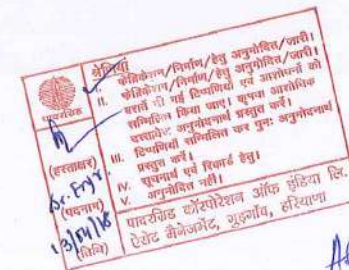 श्रेणियां
I. फेब्रिकेशन/निर्माण/हेतु अनुमोदित/जारी।
II. फेब्रिकेशन/निर्माण/हेतु अनुमोदित/जारी।
बशर्ते की गई टिप्पणियों एवं आशोधनों को
सम्मिलित किया जाए। कृपया आशोधित
दस्तावेज अनुमोदनार्थ प्रस्तुत करें।
III. टिप्पणियाँ सम्मिलित कर पुनः अनुमोदनार्थ
प्रस्तुत करें।
IV. सूचनार्थ एवं रिकार्ड हेतु।
V. अनुमोदित नहीं।
पावरग्रिड
(हस्ताक्षर)
Sr. Engr.
(पदनाम)
(तिथि)
पावरग्रिड कॉरपोरेशन ऑफ इंडिया लि.
ऐसेट मैनेजमेंट, गुड़गाँव, हरियाणा